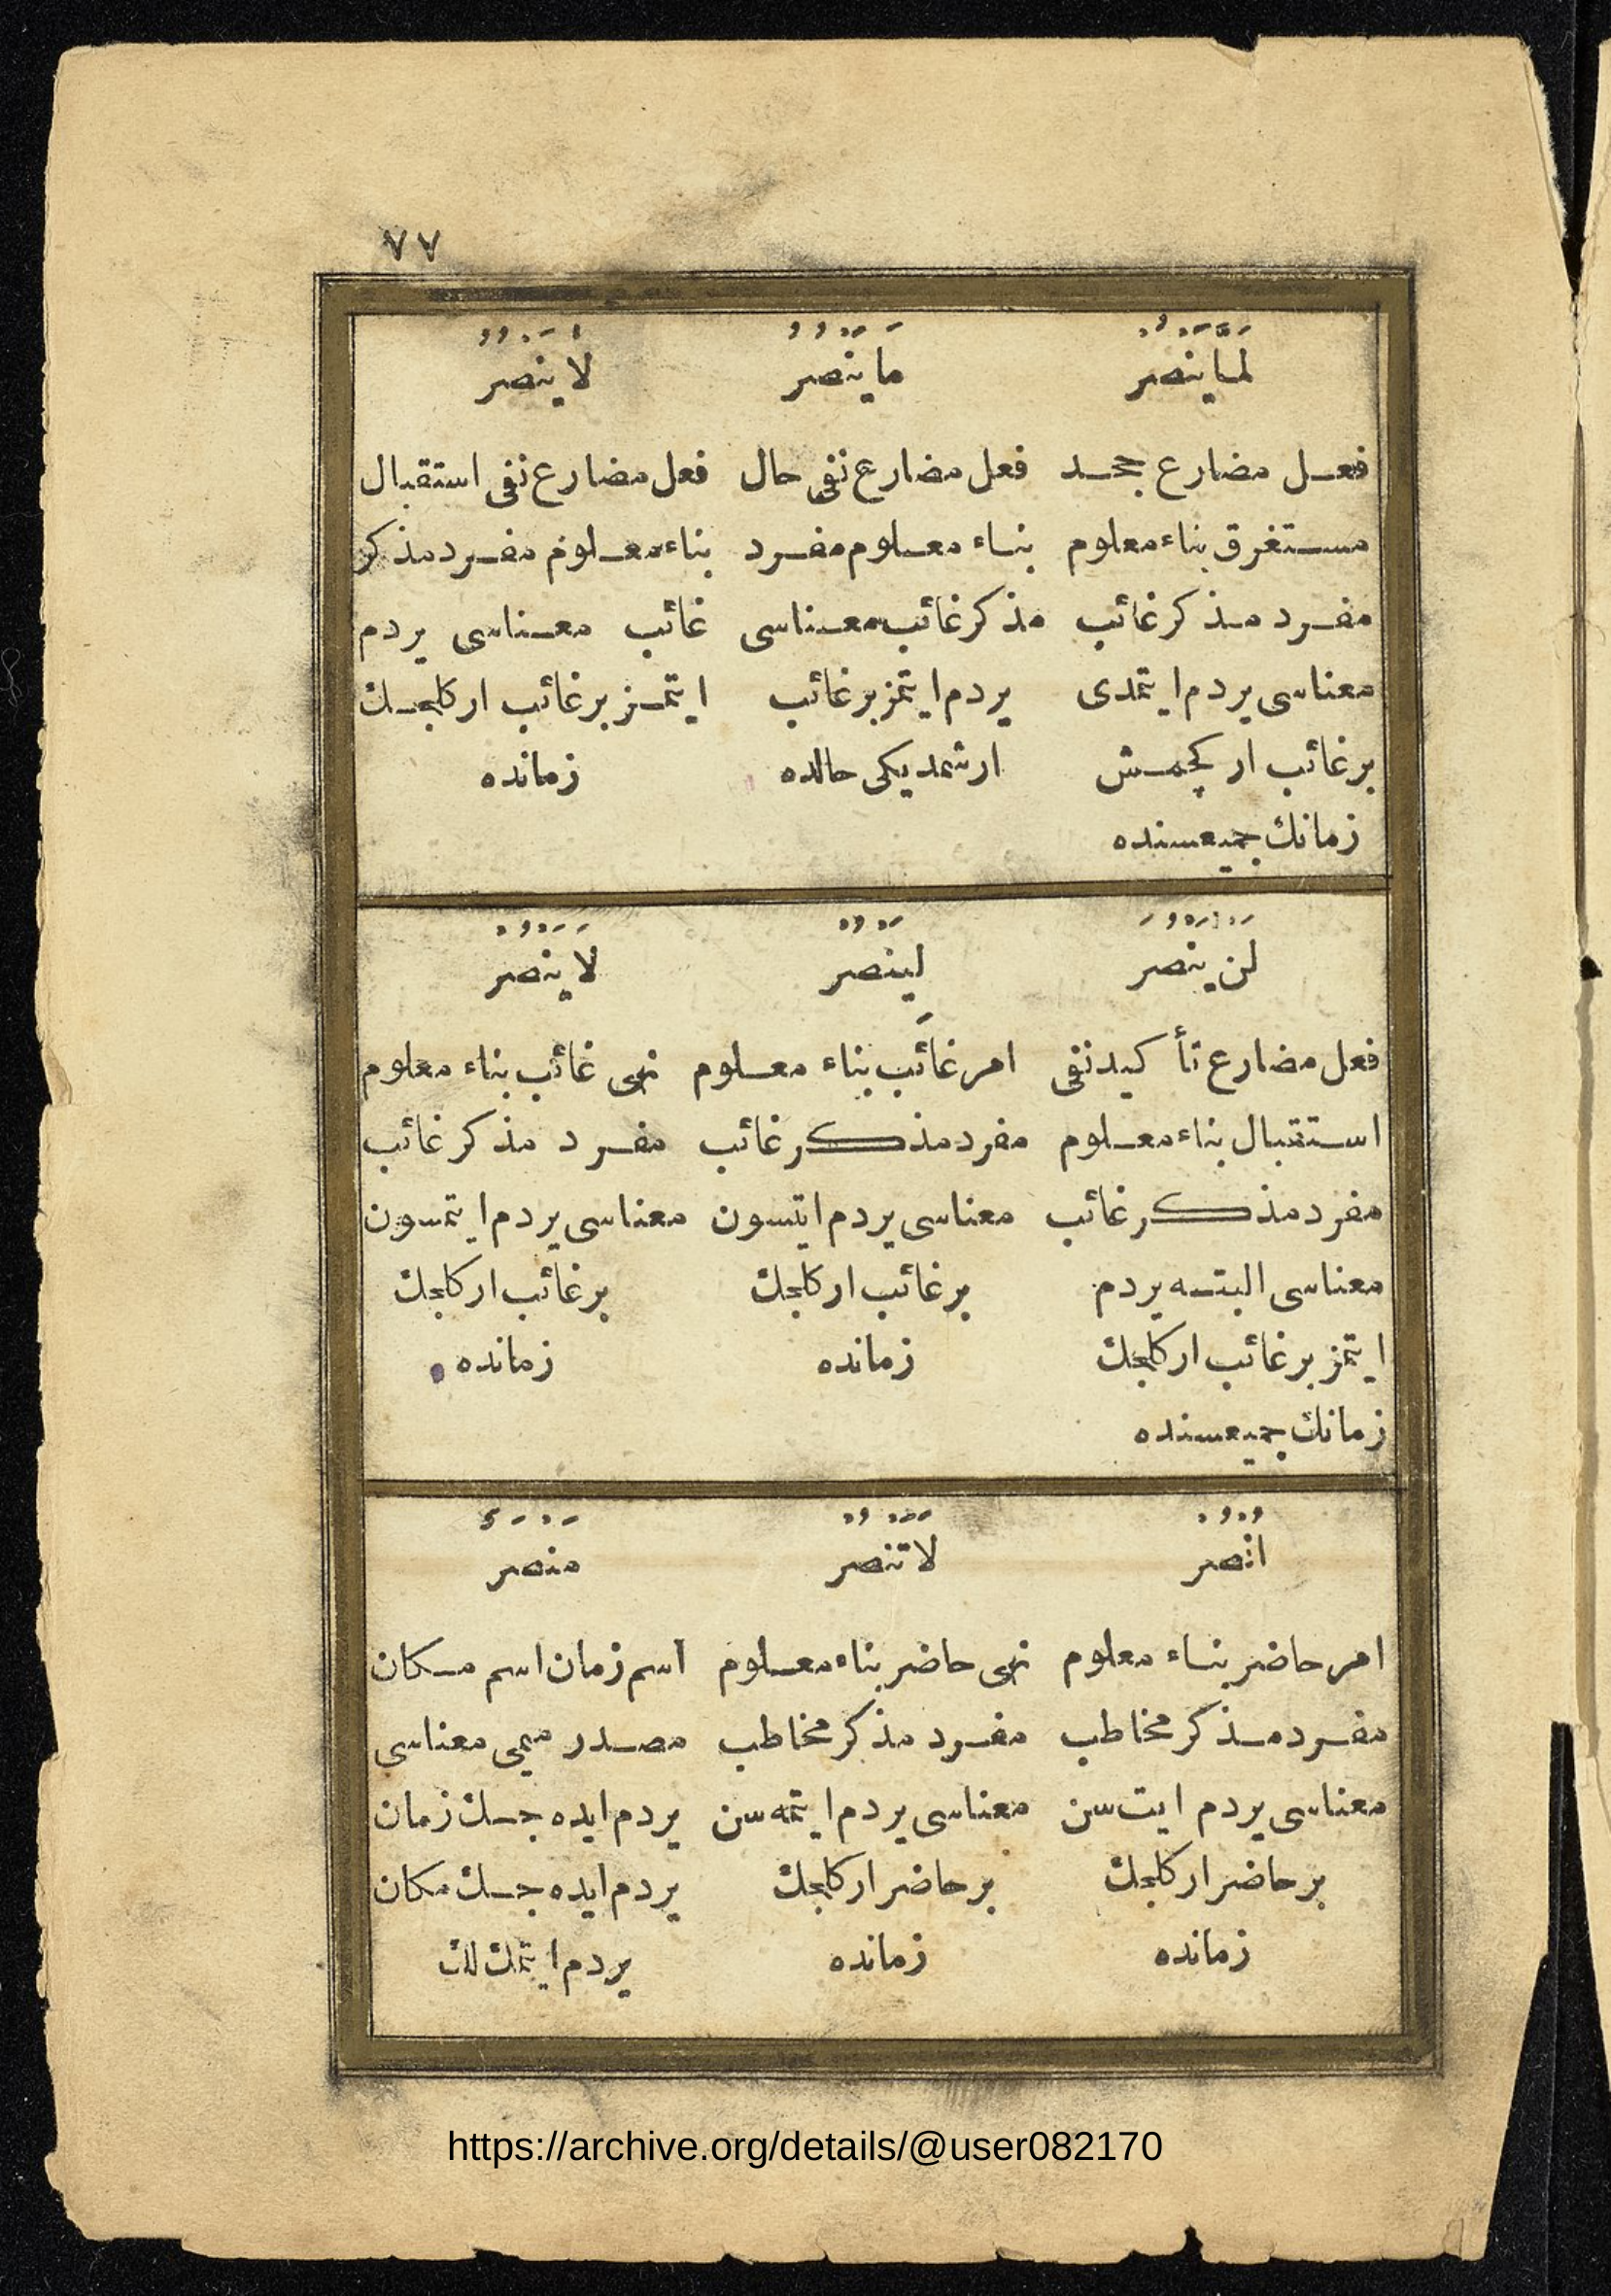 ٧٧
لَمَّا يَنْصُرْ
فعل مضارع جحد
مستغرق بناء معلوم
مفرد مذكر غائب
معناسى يردم ايتمدى
بر غائب ار كچمش
زمانك جميعسنده
مَا يَنْصُرُ
فعل مضارع نفى حال
بناء معلوم مفرد
مذكر غائب معناسى
يردم ايتمز بر غائب
ار شمديكى حالده
لَا يَنْصُرُ
فعل مضارع نفى استقبال
بناء معلوم مفرد مذكر
غائب معناسى يردم
ايتمز بر غائب ار كلجك
زمانده
لَنْ يَنْصُرَ
فعل مضارع تأكيد نفى
استقبال بناء معلوم
مفرد مذكر غائب
معناسى البته يردم
ايتمز بر غائب ار كلجك
زمانك جميعسنده
لينْصُرْ
امر غائب بناء معلوم
مفرد مذكر غائب
معناسى يردم ايتسون
بر غائب ار كلجك
زمانده
لَا يَنْصُرْ
نهى غائب بناء معلوم
مفرد مذكر غائب
معناسى يردم ايتمسون
بر غائب ار كلجك
زمانده
اُنْصُرْ
امر حاضر بناء معلوم
مفرد مذكر مخاطب
معناسى يردم ايت سن
بر حاضر ار كلجك
زمانده
لَا تَنْصُرْ
نهى حاضر بناء معلوم
مفرد مذكر مخاطب
معناسى يردم ايتمه سن
بر حاضر ار كلجك
زمانده
مَنْصَرٌ
اسم زمان اسم مكان
مصدر ميمى معناسى
يردم ايده جك زمان
يردم ايده جك مكان
يردم ايتمك لك
https://archive.org/details/@user082170